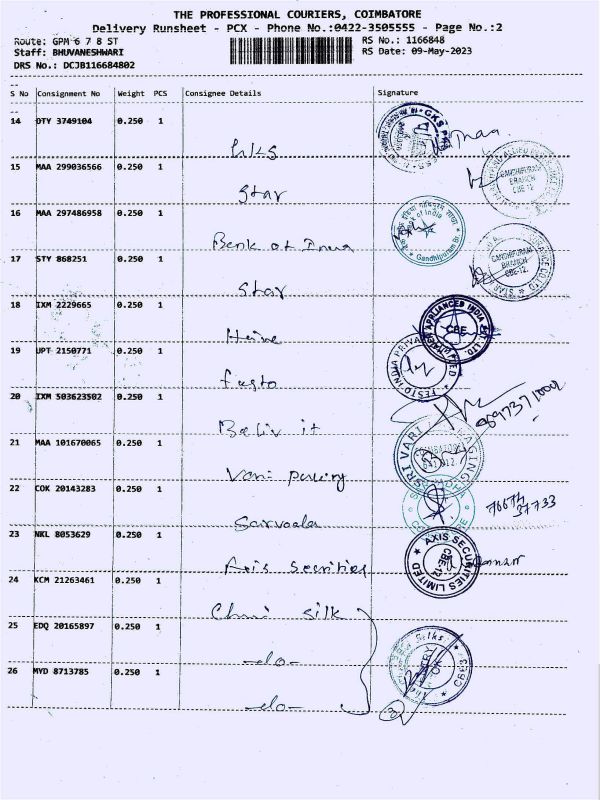 THE PROFESSIONAL COURIERS, COIMBATORE
Delivery Runsheet - PCX - Phone No.:0422-3505555 - Page No.:2
Route: GPM 6 7 8 ST RS No.: 1166848
Staff: BHUVANESHWARI RS Date: 09-May-2023
DRS No.: DCJB116684802
S No Consignment No Weight PCS Consignee Details Signature
14 DTY 3749104 0.250 1
GKS
15 MAA 299036566 0.250 1
Star
GANDHIPURAM
BRANCH
CBE-12
16 MAA 297486958 0.250 1
Bank of India
Bank of India
Gandhipuram Br.
17 STY 868251 0.250 1
Star
GANDHIPURAM
BRANCH
CBE-12.
STAR
18 IXM 2229665 0.250 1
APPLIANCES INDIA PVT. LTD.
CBE
19 JPT 2150771 0.250 1
TESTO INDIA PRIVATE
20 IXM 503623502 0.250 1
Beliv it
21 MAA 101670065 0.250 1
SRI VARI
22 COK 20143283 0.250 1
23 NKL 8053629 0.250 1
Axis Securities
AXIS SECURITIES LIMITED
CBE-12
24 KCM 21263461 0.250 1
silk
25 EDQ 20165897 0.250 1
-do-
Silks
26 MYD 8713785 0.250 1
-do-
3